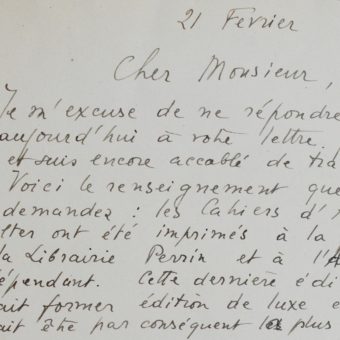 21 Février
Cher Monsieur,
Je m'excuse de ne répondre
aujourd'hui à votre lettre.
et suis encore accablé de tra
Voici le renseignement que
demandez : les Cahiers d'
lter ont été imprimés à la
la Librairie Perrin et à l'
épendant. Cette dernière édi
ait former édition de luxe e
ait être par conséquent la plus